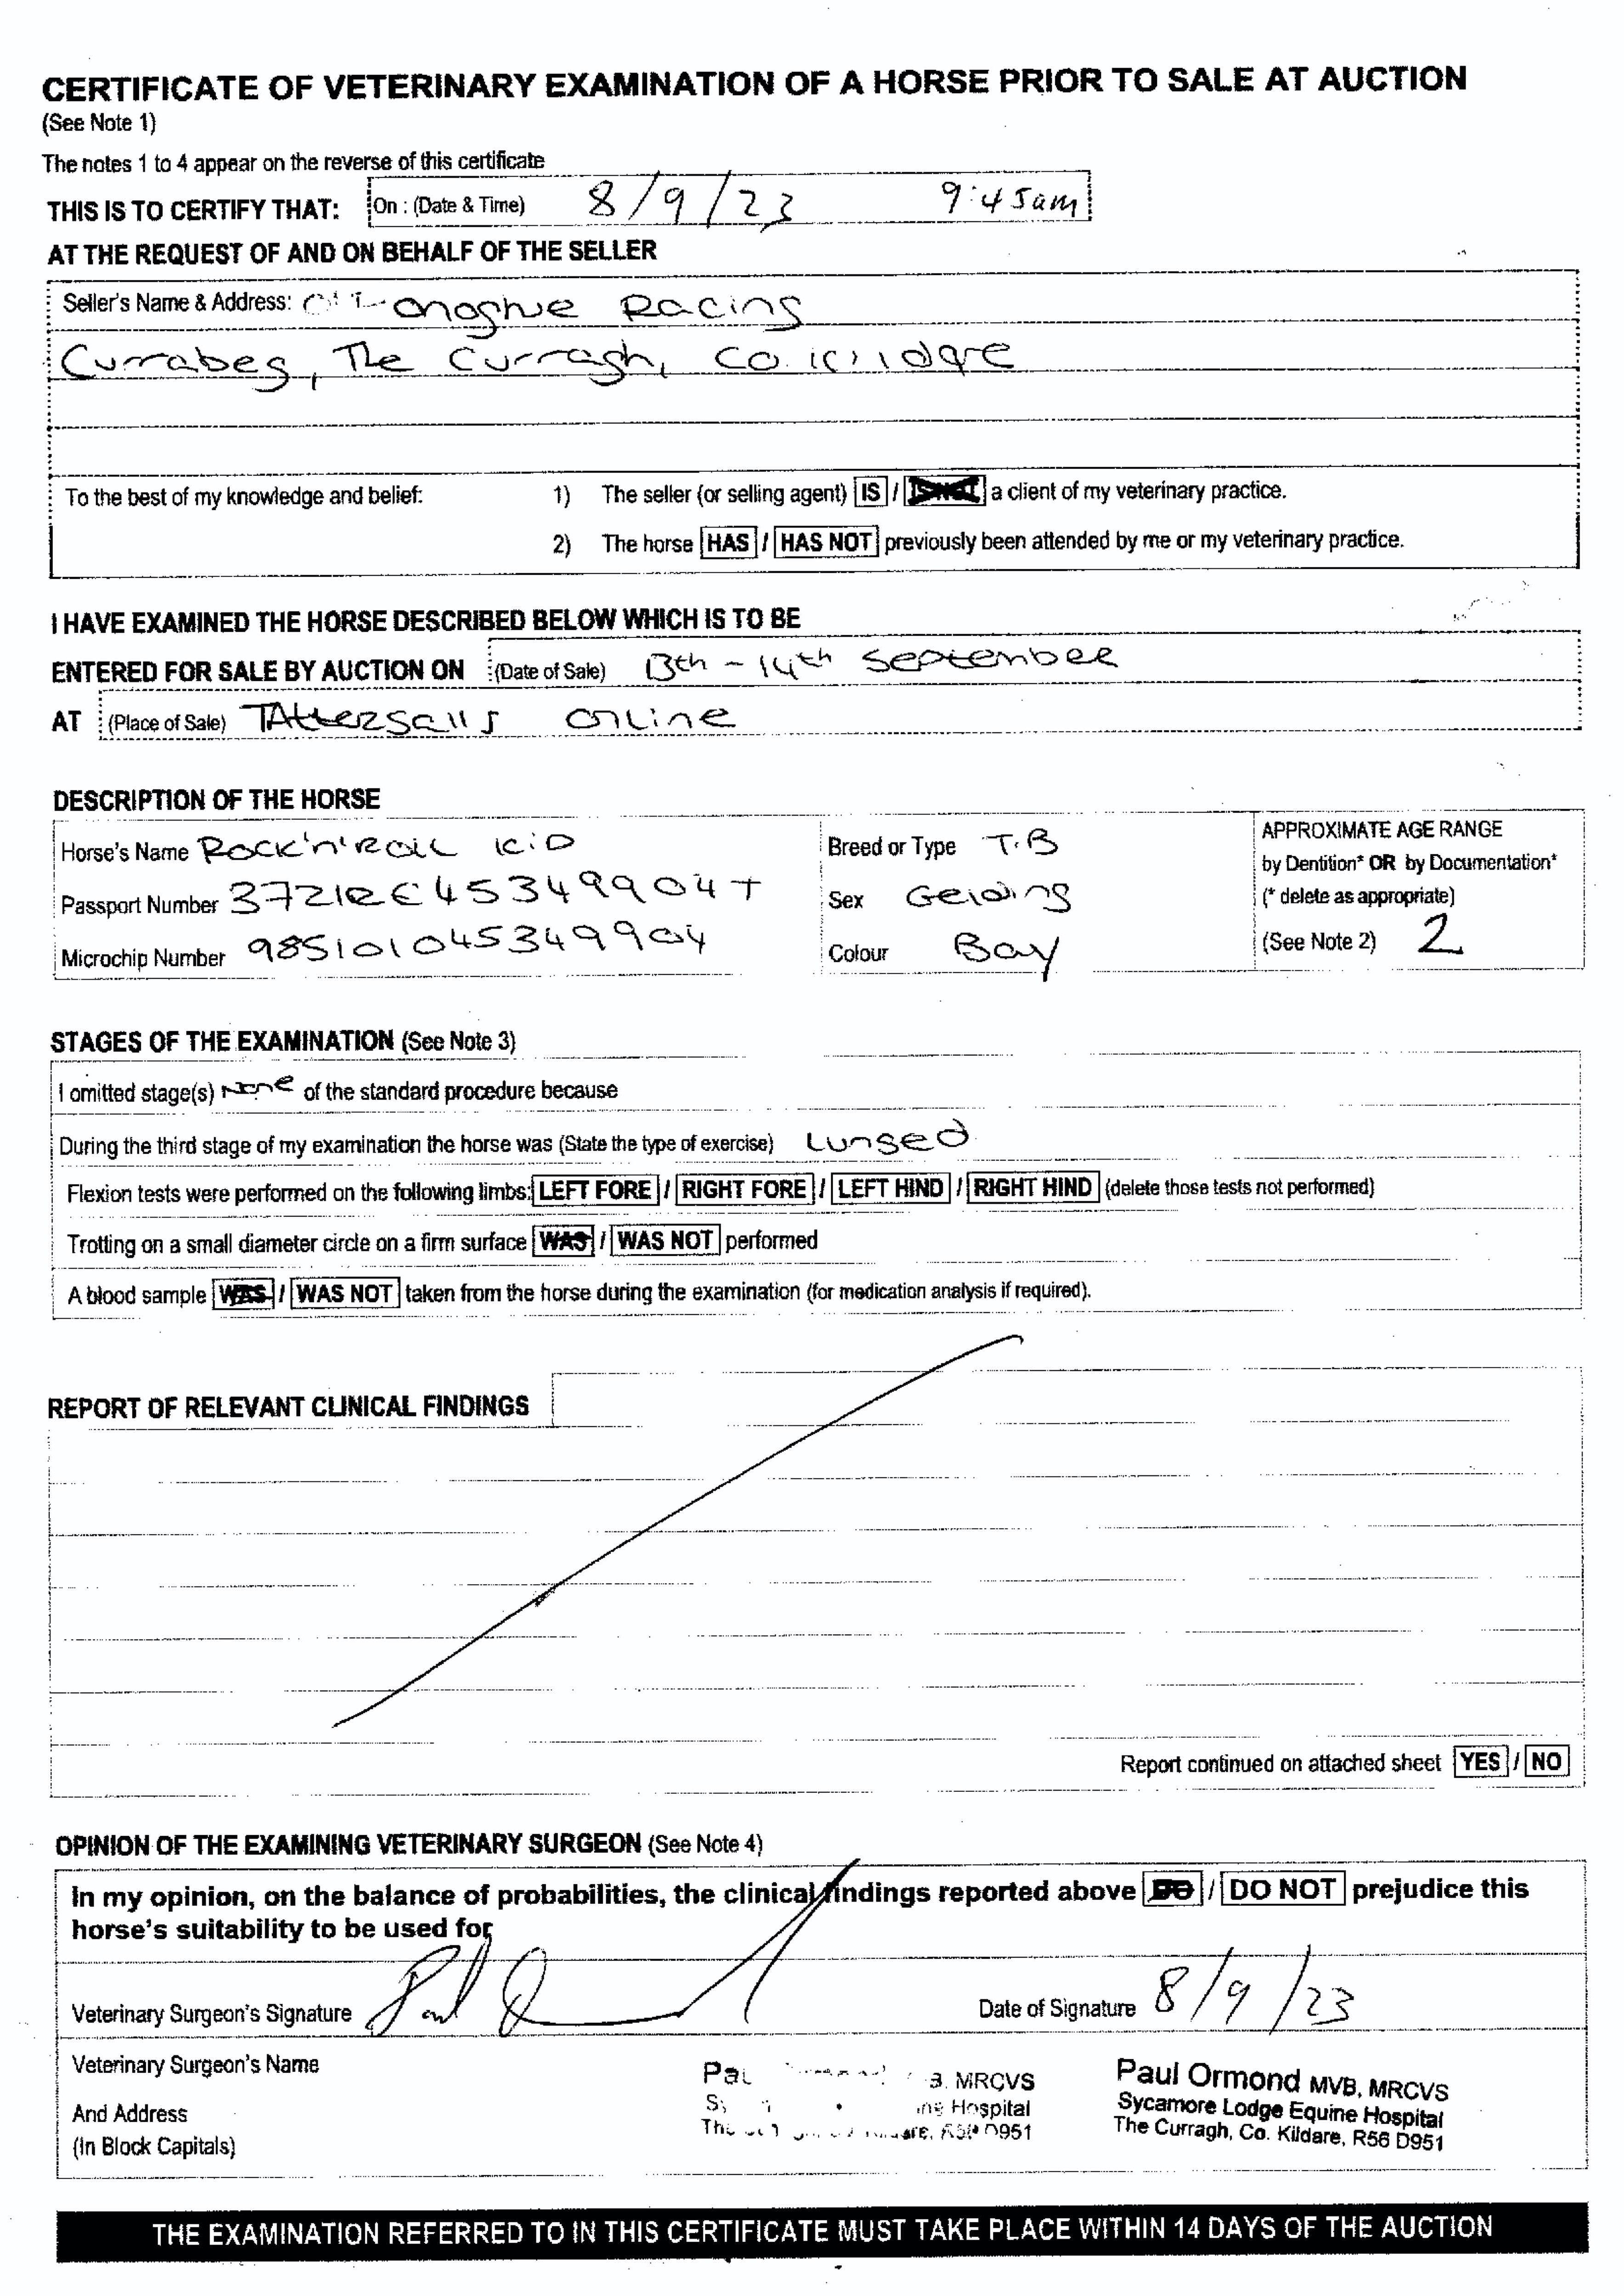 CERTIFICATE OF VETERINARY EXAMINATION OF A HORSE PRIOR TO SALE AT AUCTION
(See Note 1)
The notes 1 to 4 appear on the reverse of this certificate
THIS IS TO CERTIFY THAT: On : (Date & Time) 8/9/23 9:45am
AT THE REQUEST OF AND ON BEHALF OF THE SELLER
Seller's Name & Address: onoghue Racing
Currabeg, The Curragh, Co. Kildare
To the best of my knowledge and belief: 1) The seller (or selling agent) IS / IS NOT a client of my veterinary practice.
2) The horse HAS / HAS NOT previously been attended by me or my veterinary practice.
I HAVE EXAMINED THE HORSE DESCRIBED BELOW WHICH IS TO BE
ENTERED FOR SALE BY AUCTION ON (Date of Sale) 13th - 14th September
AT (Place of Sale) TAttersalls online
DESCRIPTION OF THE HORSE
Horse's Name Rock'n'Roll Kid Breed or Type T.B APPROXIMATE AGE RANGE
by Dentition* OR by Documentation*
Passport Number 372IRE45349904T Sex Gelding (* delete as appropriate)
Microchip Number 985101045349904 Colour Bay (See Note 2) 2
STAGES OF THE EXAMINATION (See Note 3)
I omitted stage(s) None of the standard procedure because
During the third stage of my examination the horse was (State the type of exercise) Lunged
Flexion tests were performed on the following limbs: LEFT FORE / RIGHT FORE / LEFT HIND / RIGHT HIND (delete those tests not performed)
Trotting on a small diameter circle on a firm surface WAS / WAS NOT performed
A blood sample WAS / WAS NOT taken from the horse during the examination (for medication analysis if required).
REPORT OF RELEVANT CLINICAL FINDINGS
Report continued on attached sheet YES / NO
OPINION OF THE EXAMINING VETERINARY SURGEON (See Note 4)
In my opinion, on the balance of probabilities, the clinical findings reported above DO / DO NOT prejudice this
horse's suitability to be used for
Veterinary Surgeon's Signature Date of Signature 8/9/23
Veterinary Surgeon's Name
And Address
(In Block Capitals)
MRCVS
Hospital
D951
Paul Ormond MVB, MRCVS
Sycamore Lodge Equine Hospital
The Curragh, Co. Kildare, R56 D951
THE EXAMINATION REFERRED TO IN THIS CERTIFICATE MUST TAKE PLACE WITHIN 14 DAYS OF THE AUCTION